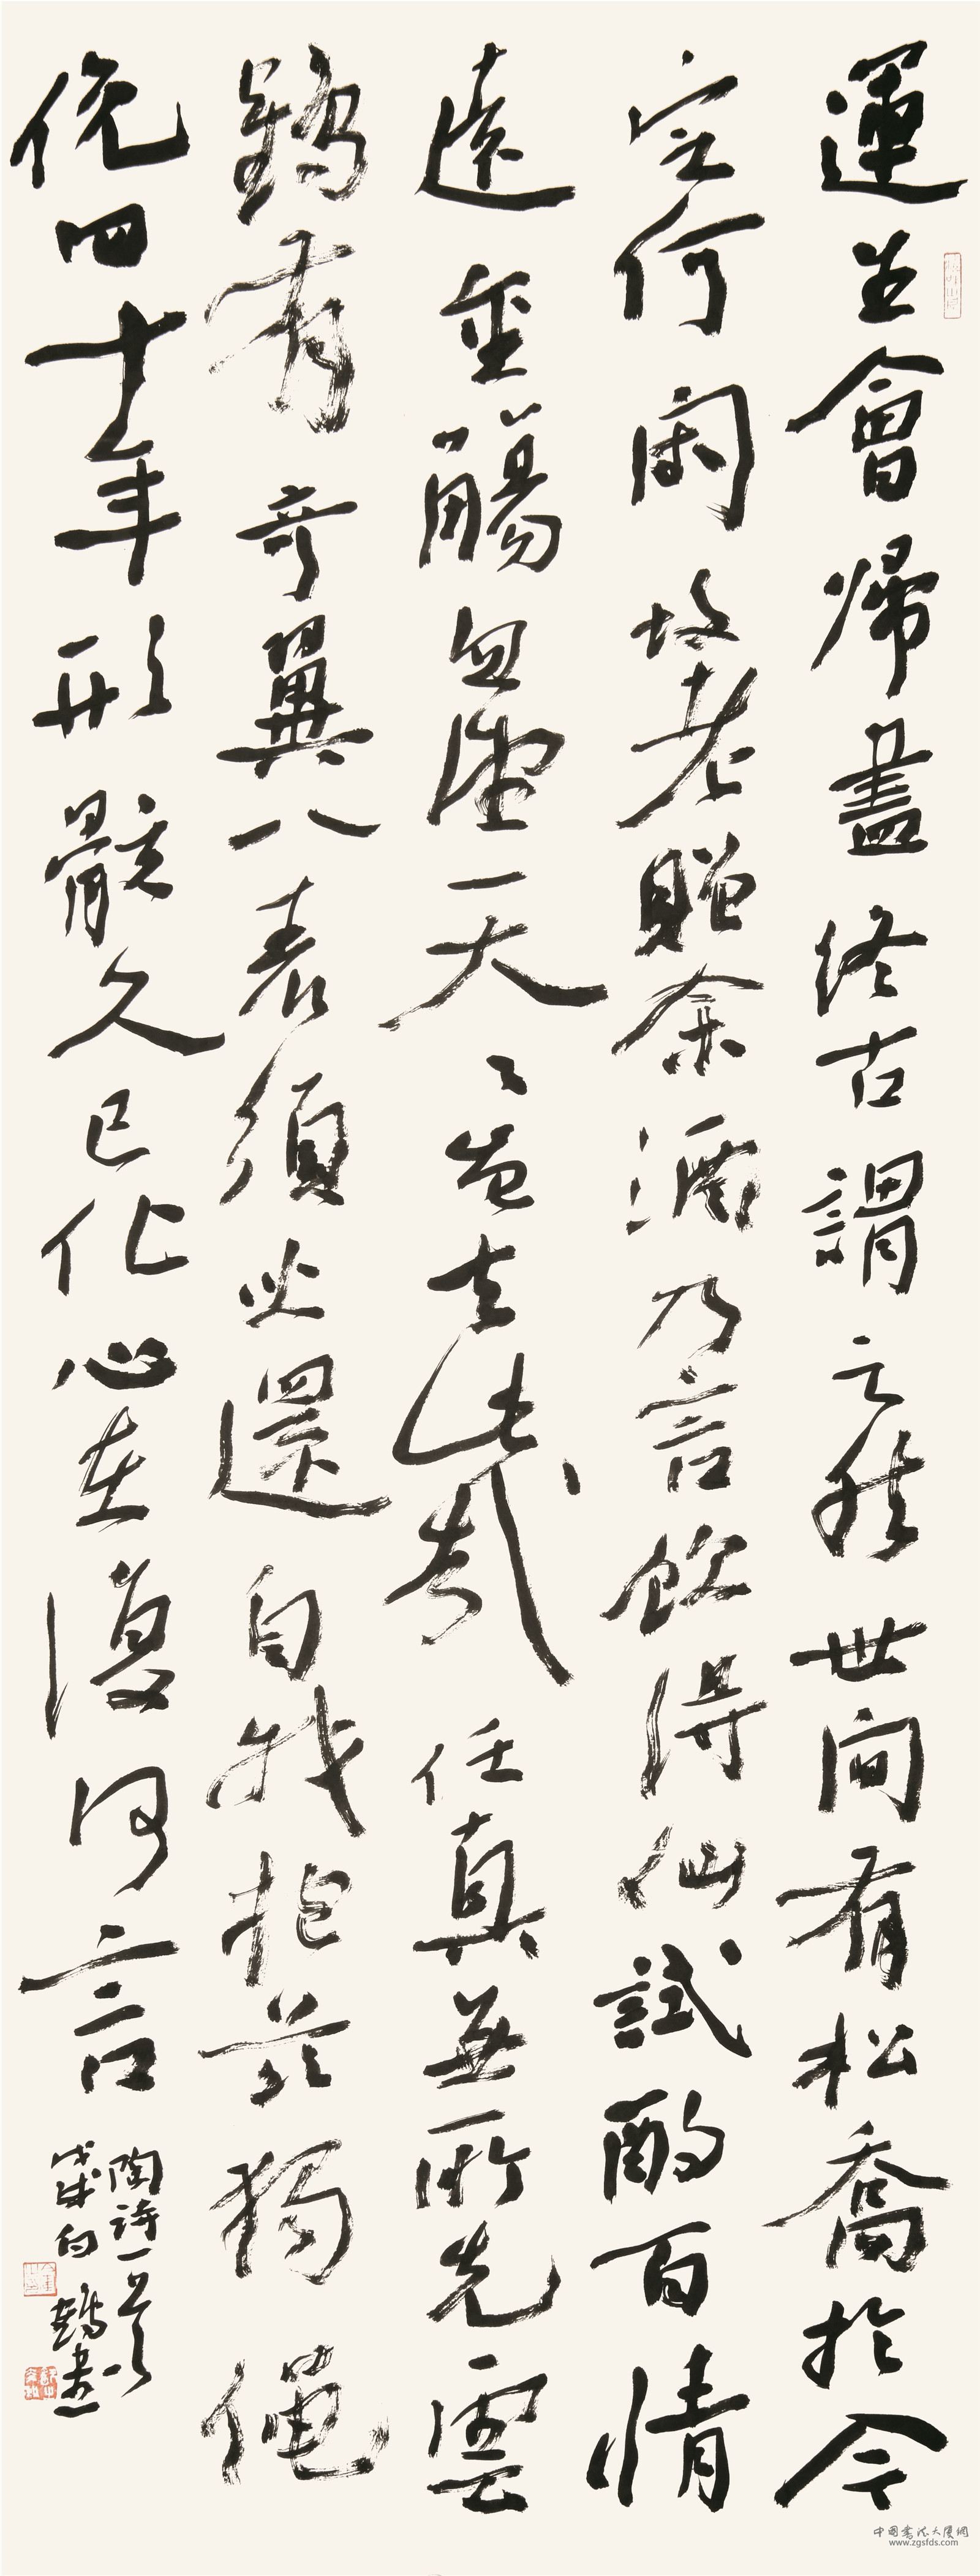 運生會歸盡終古謂之然世間有松喬於今
定何聞故老贈余酒乃言飲得仙試酌百情
遠重觴忽忘天〻豈去此哉任真無所先雲
鶴有奇翼八表須臾還自我抱茲獨僶
俛四十年形骸久已化心在復何言
陶詩一首
戊戌白鶴書
中國書法大厦網
www.zgsfds.com